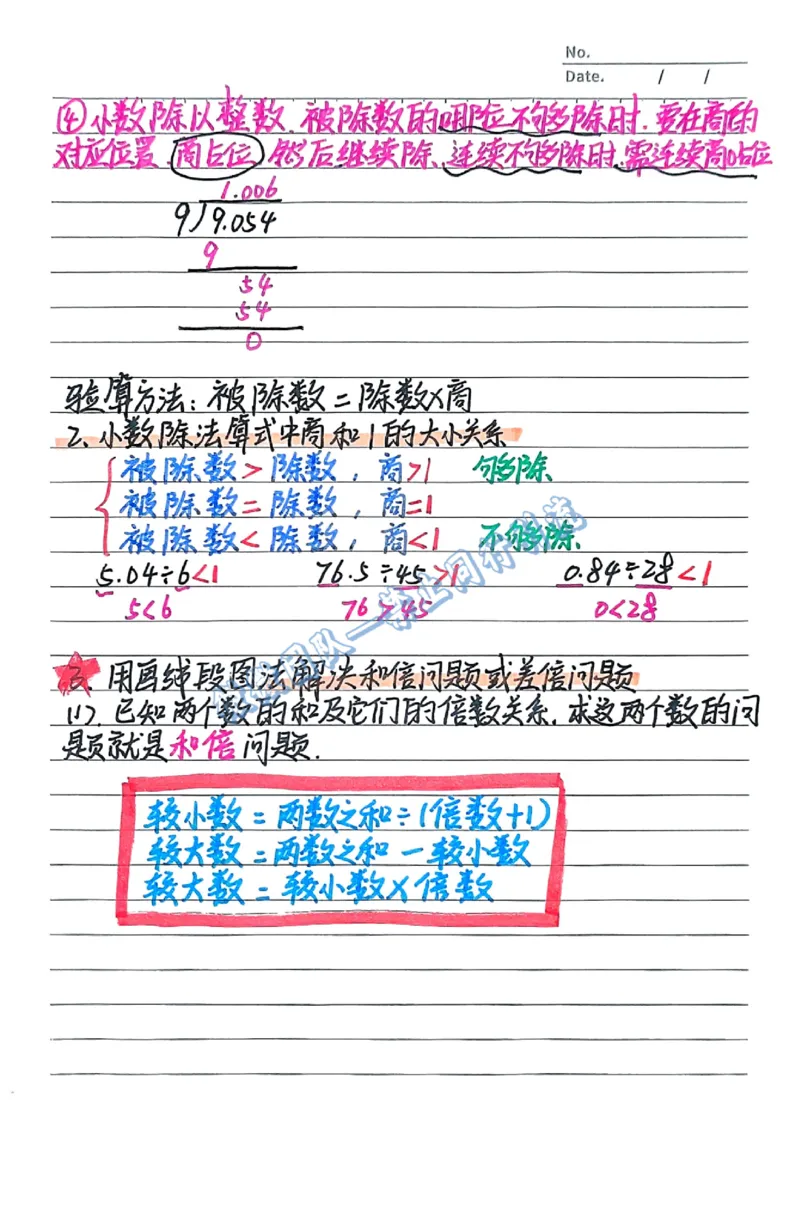 No.
Date. / /
④小数除以整数,被除数的哪位不够除时,要在商的
对应位置商0占位,然后继续除,连续不够除时,需连续商0占位
1.006
9)9.054
9
54
54
0
验算方法:被除数=除数×商
2、小数除法算式中商和1的大小关系
被除数>除数,商>1 够除
被除数=除数,商=1
被除数<除数,商<1 不够除
5.04÷6<1 76.5÷45>1 0.84÷28<1
5<6 76>45 0<28
3、用画线段图法解决和倍问题或差倍问题
(1).已知两个数的和及它们的倍数关系,求这两个数的问
题就是和倍问题.
较小数=两数之和÷(倍数+1)
较大数=两数之和-较小数
较大数=较小数×倍数